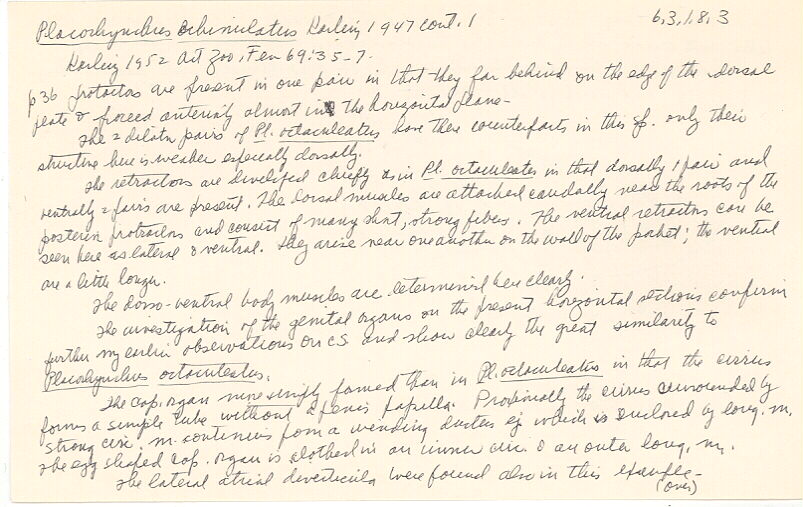 Placorhynchus echinulatus Karling 1947 cont. 1
6,3,1,8,3
Karling 1952 Art Zoo, Fen 69:35-7.
p36 protractors are present in one pair in that they far behind on the edge of the dorsal
plate & forced anteriorly almost in the horizontal plane-
The 2 dilator pairs of Pl. octaculeatus have there counterparts in this sp. only their
structure here is weaker especially dorsally.
The retractors are developed chiefly as in Pl. octaculeatus in that dorsally 1 pair and
ventrally 2 pairs are present. The dorsal muscles are attached caudally near the roots of the
posterior protractors and consist of many short, strong fibers. The ventral retractors can be
seen here as lateral & ventral. They arise near one another on the wall of the pocket; the ventral
are a little longer.
The dorso-ventral body muscles are determined here clearly.
The investigation of the genital organs on the present horizontal sections confirm
further my earlier observations on CS and show clearly the great similarity to
Placorhynchus octaculeatus.
The cop. organ more simply formed than in Pl. octaculeatus in that the cirrus
forms a simple tube without a penis papilla. Proximally the cirrus surrounded by
strong circ. m. continues from a winding ductus ej which is enclosed by long. m.
The egg shaped cop. organ is clothed in an inner circ. & an outer long. m.
The lateral atrial diverticula were found also in this example-
(over)